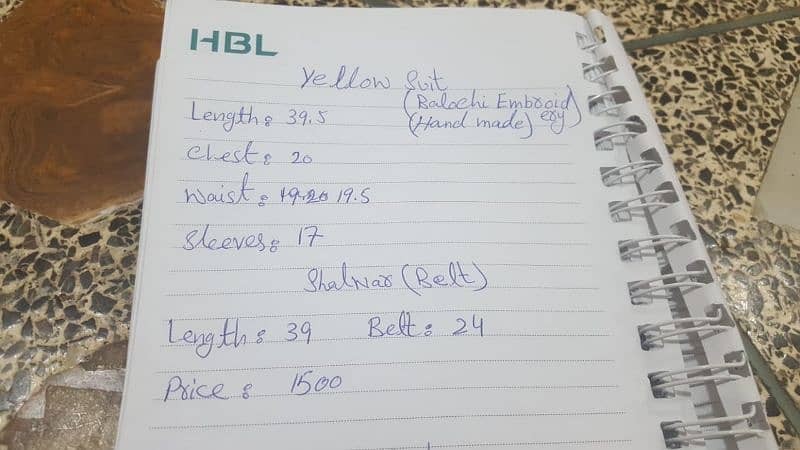 HBL
Yellow Suit
(Balochi Embroidery)
(Hand made)
Length: 39.5
Chest: 20
Waist: 19.20 19.5
Sleeves: 17
Shalwar (Belt)
Length: 39 Belt: 24
Price: 1500